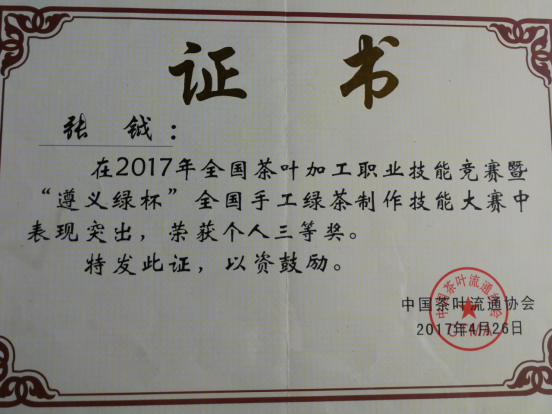 证书
张 钺：
在2017年全国茶叶加工职业技能竞赛暨
“遵义绿杯”全国手工绿茶制作技能大赛中
表现突出，荣获个人三等奖。
特发此证，以资鼓励。
中国茶叶流通协会
2017年4月26日
中国茶叶流通协会